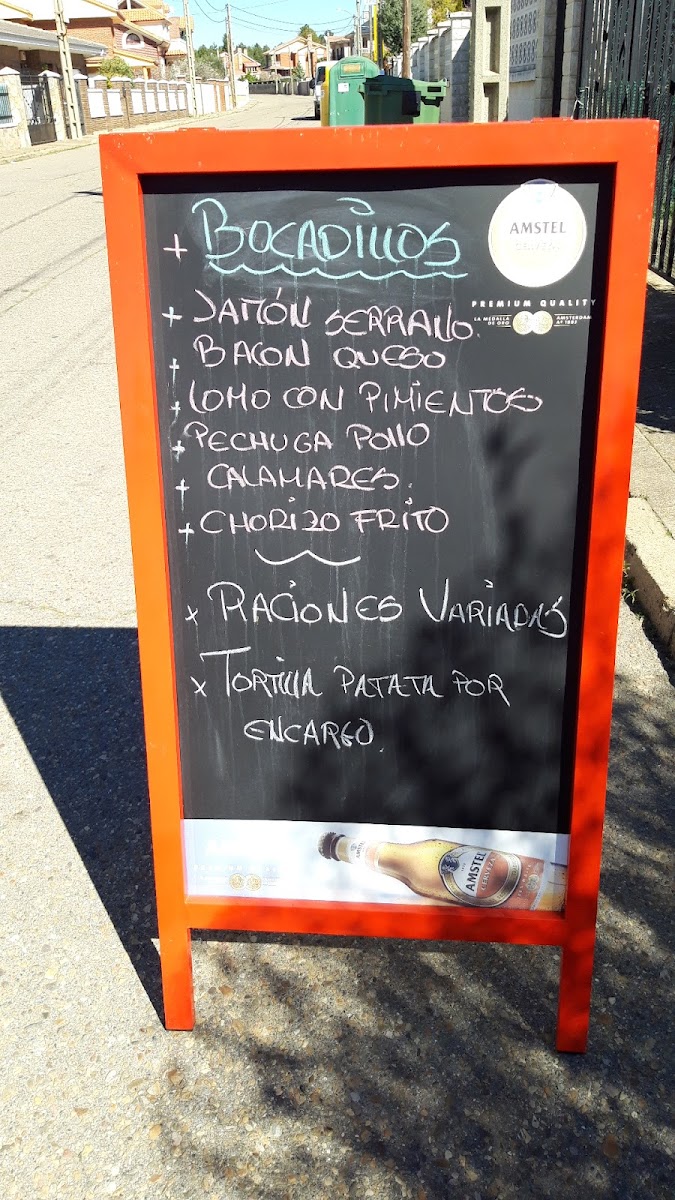 + BOCADILLOS
AMSTEL
CERVEZA
PREMIUM QUALITY
LA MEDALLA DE ORO
AMSTERDAM Aº 1883
+ JAMÓN SERRANO.
+ BACON QUESO
+ LOMO CON PIMIENTOS
+ PECHUGA POLLO
+ CALAMARES.
+ CHORIZO FRITO
x RACIONES VARIADAS
x TORTILLA PATATA POR
ENCARGO.
AMSTEL
CERVEZA